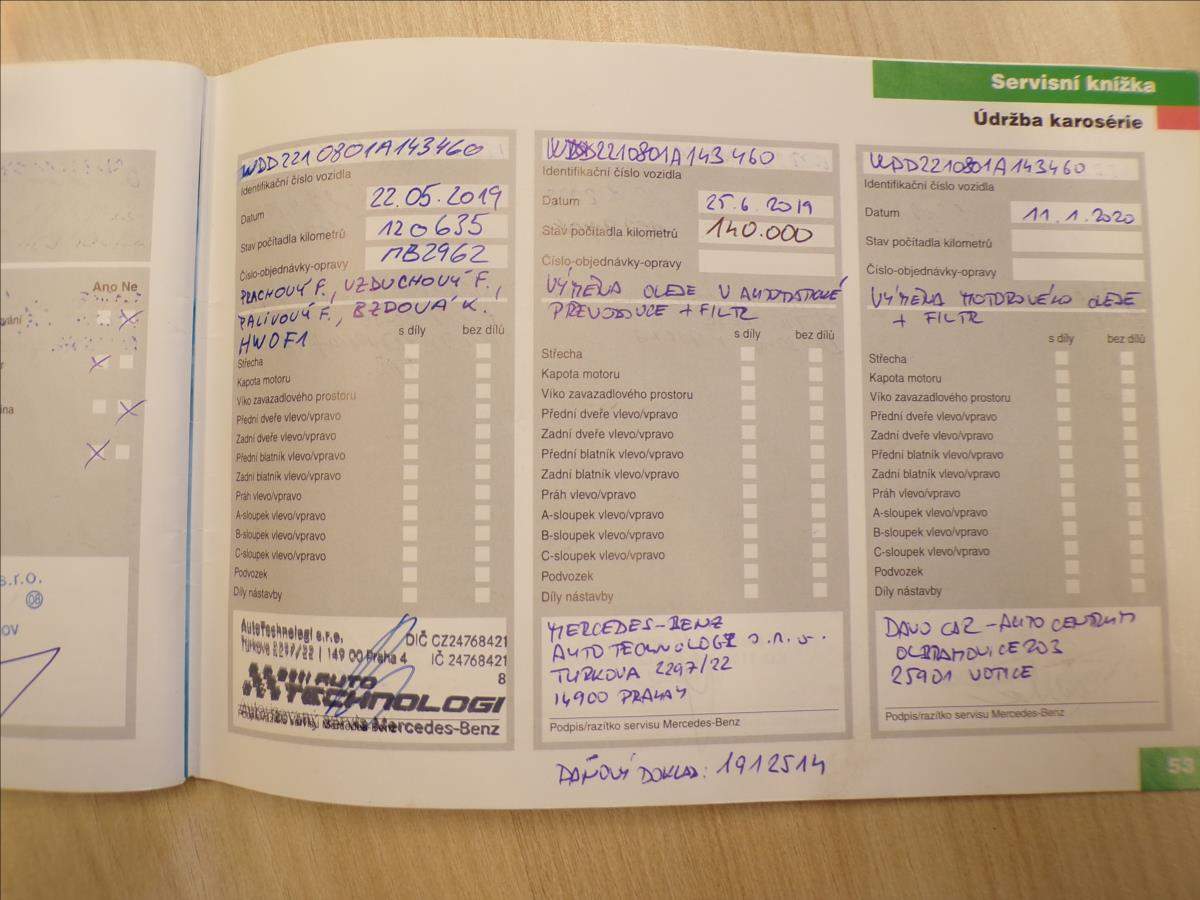 Servisní knížka
Údržba karosérie
Ano Ne
s.r.o.
08
WDD2210801A143460
Identifikační číslo vozidla
Datum 22.05.2019
Stav počítadla kilometrů 120635
Číslo-objednávky-opravy MB2962
PRACHOVÝ F., VZDUCHOVÝ F.,
PALIVOVÝ F., BZDOVÁ K.
s díly bez dílů
Střecha
Kapota motoru
Víko zavazadlového prostoru
Přední dveře vlevo/vpravo
Zadní dveře vlevo/vpravo
Přední blatník vlevo/vpravo
Zadní blatník vlevo/vpravo
Práh vlevo/vpravo
A-sloupek vlevo/vpravo
B-sloupek vlevo/vpravo
C-sloupek vlevo/vpravo
Podvozek
Díly nástavby
AutoTechnologi s.r.o. DIČ CZ24768421
Türkova 2297/22 | 149 00 Praha 4 IČ 24768421
8
AUTO
TECHNOLOGI
Mercedes-Benz
WDD2210801A143460
Identifikační číslo vozidla
Datum 25.6.2019
Stav počítadla kilometrů 140.000
Číslo-objednávky-opravy
VÝMĚNA OLEJE V AUTOMATICKÉ
PŘEVODOVCE + FILTR
s díly bez dílů
Střecha
Kapota motoru
Víko zavazadlového prostoru
Přední dveře vlevo/vpravo
Zadní dveře vlevo/vpravo
Přední blatník vlevo/vpravo
Zadní blatník vlevo/vpravo
Práh vlevo/vpravo
A-sloupek vlevo/vpravo
B-sloupek vlevo/vpravo
C-sloupek vlevo/vpravo
Podvozek
Díly nástavby
MERCEDES-BENZ
AUTO TECHNOLOGI s.r.o.
TURKOVA 2297/22
14900 PRAHA 4
Podpis/razítko servisu Mercedes-Benz
DAŇOVÝ DOKLAD: 1912514
WDD2210801A143460
Identifikační číslo vozidla
Datum 11.1.2020
Stav počítadla kilometrů
Číslo-objednávky-opravy
VÝMĚNA MOTOROVÉHO OLEJE
+ FILTR
s díly bez dílů
Střecha
Kapota motoru
Víko zavazadlového prostoru
Přední dveře vlevo/vpravo
Zadní dveře vlevo/vpravo
Přední blatník vlevo/vpravo
Zadní blatník vlevo/vpravo
Práh vlevo/vpravo
A-sloupek vlevo/vpravo
B-sloupek vlevo/vpravo
C-sloupek vlevo/vpravo
Podvozek
Díly nástavby
DAVO CAR - AUTO CENTRUM
OLBRAMOVICE 203
25901 VOTICE
Podpis/razítko servisu Mercedes-Benz
53